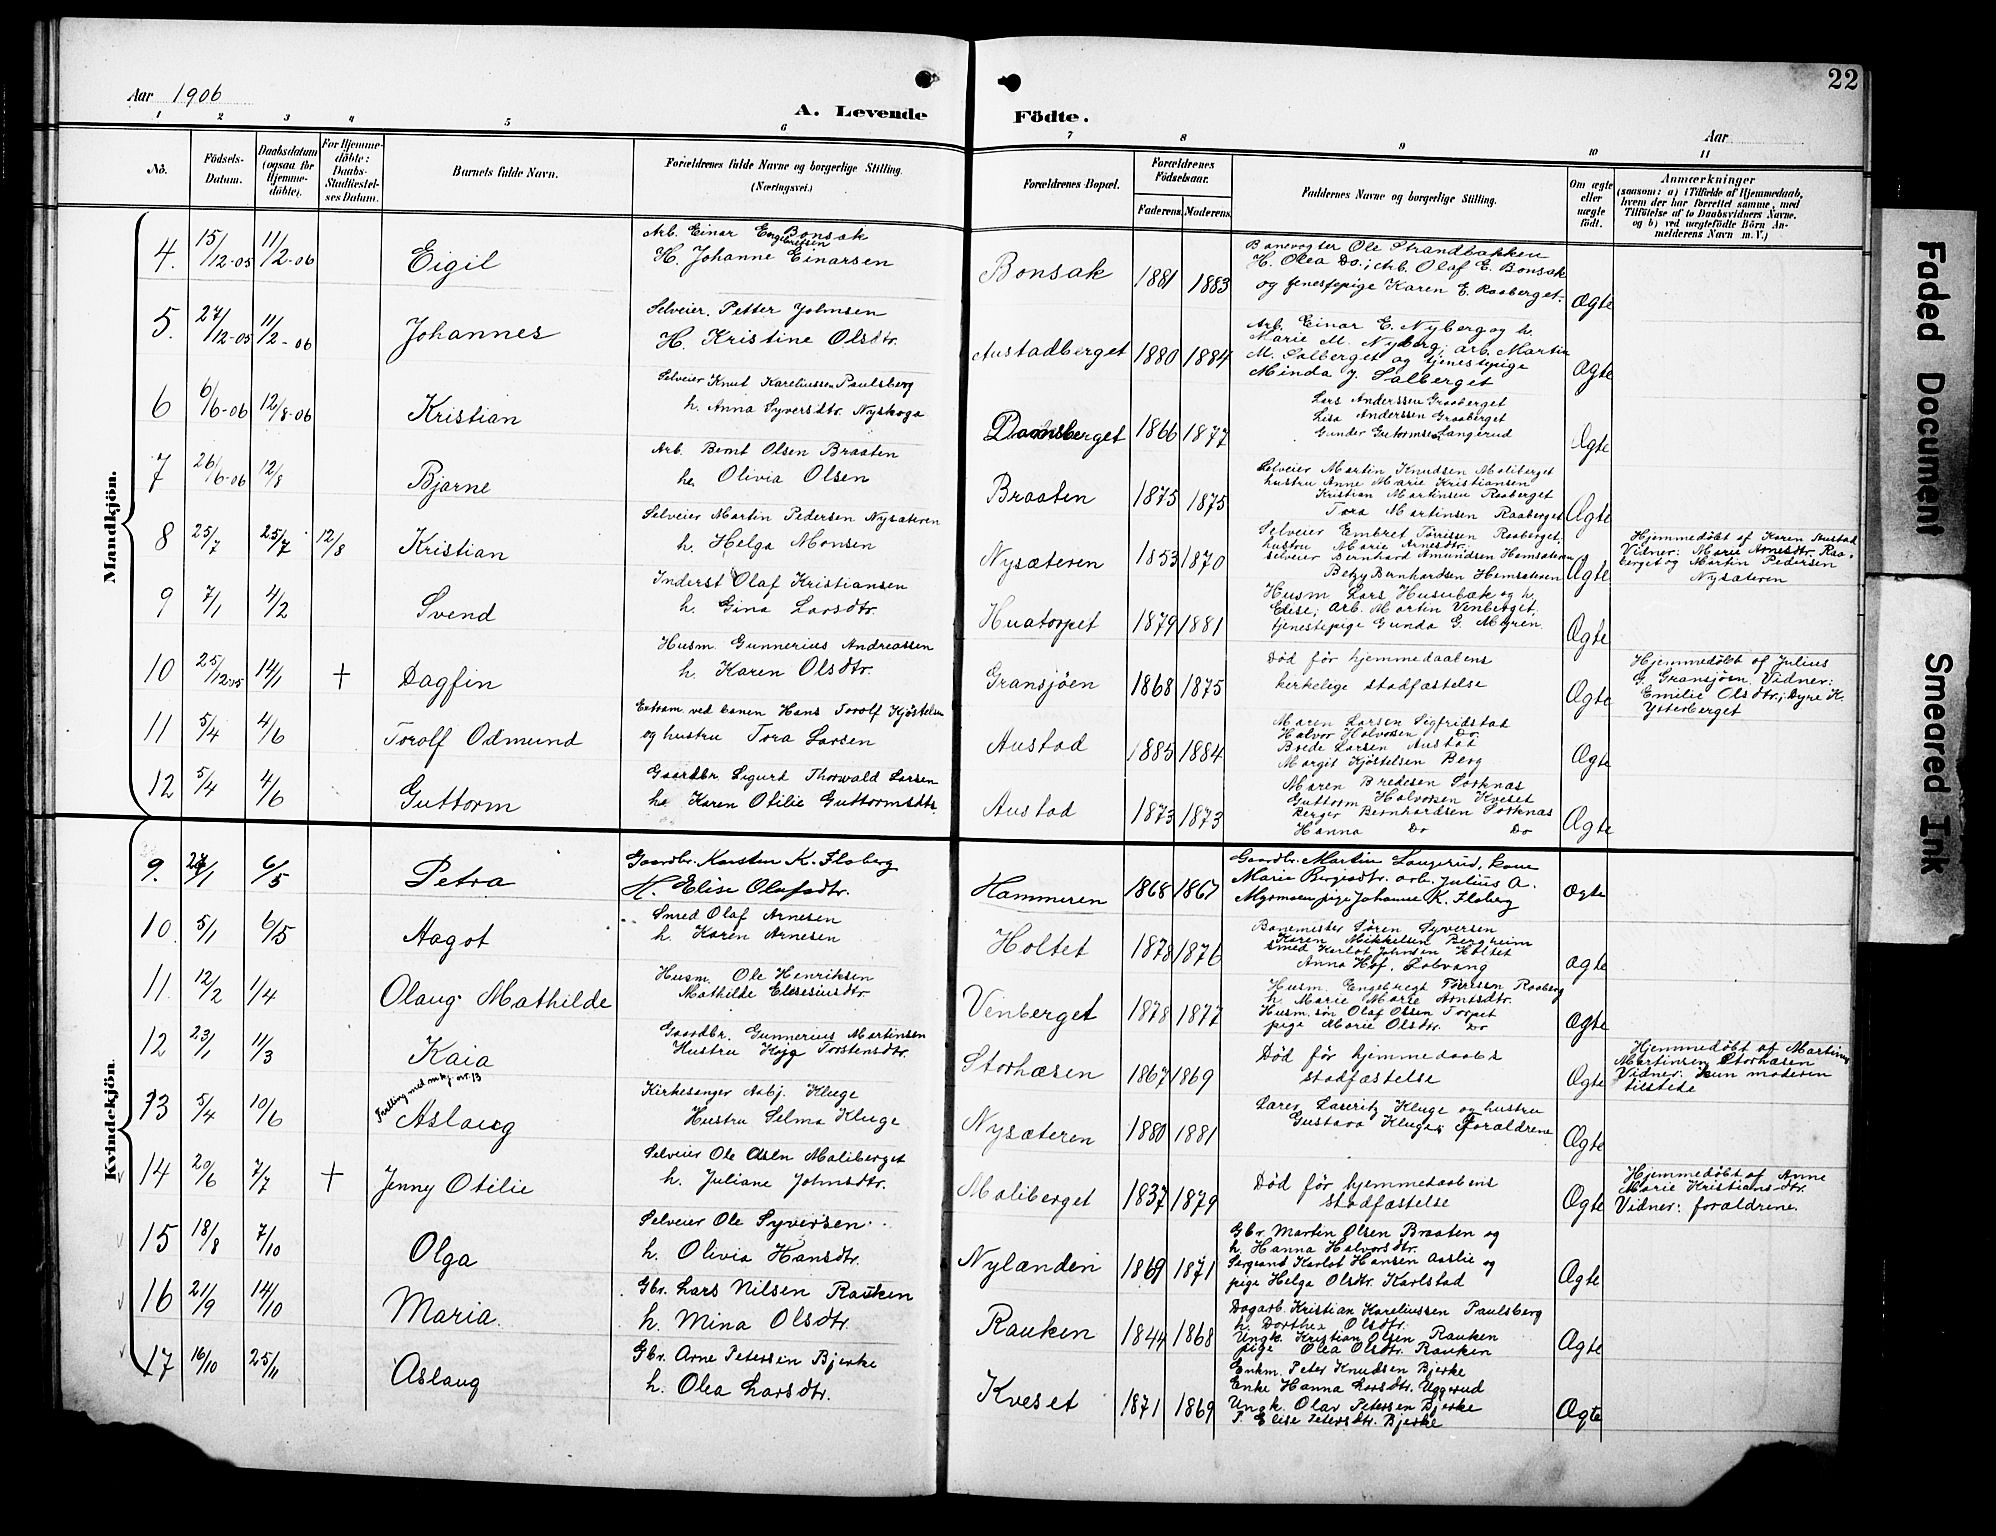 22
Aar 1906
A. Levende Födte.
Aar
1 2 3 4 5 6 7 8 9 10 11
No.
Födsels-Datum.
Daabsdatum (ogsaa for Hjemme-döbte).
For Hjemme-döbte: Daabs-Stadfæstel-ses Datum.
Barnets fulde Navn.
Forældrenes fulde Navne og borgerlige Stilling. (Næringsvei.)
Forældrenes Bopæl.
Forældrenes Födselsaar.
Faderens Moderens
Faddernes Navne og borgerlige Stilling.
Om ægte eller uægte födt.
Anmærkninger
(saasom: a) i Tilfælde af Hjemmedaab, hvem der har forrettet samme, med Tilföielse af to Daabsvidners Navne, og b) ved uægtefödte Börn An-melderens Navn m. V.)
Mandkjön.
4. 15/12-05 11/2-06 Eigil
Arb. Einar Engebretsen Bonsak
H. Johanne Einarsen
Bonsak 1881 1883
Banevogter Ole Strandbakken
H. Olea Do.; Arb. Olaf E. Bonsak
og tjenestepige Karen E. Raaberget.
Ægte
5. 27/12-05 11/2-06 Johannes
Selveier Petter Johnsen
H. Kristine Olsdtr.
Austadberget 1880 1884
Arb. Einar E. Nyberg og h.
Marie M. Nyberg; arb. Martin
M. Salberget og tjenestepige
Minda J. Salberget
Ægte
6 6/6-06 12/8-06 Kristian
Selveier Knut Kareliussen Paulsberg
h. Anna Syversdtr. Nyskoga
Damsberget 1866 1877
Lars Anderssen Graaberget
Lisa Anderssen Graaberget
Gunder Guttormsen Langerud
Ægte
7 26/6-06 12/8 Bjarne
Arb. Bernt Olsen Braaten
h. Olivia Olsen
Braaten 1875 1875
Selveier Martin Knudsen Maliberget
hustru Anne Marie Kristiansen
Kristian Martinsen Raaberget
Tora Martinsen Raaberget
Ægte
8 25/7 25/7 12/8 Kristian
Selveier Martin Pedersen Nysæteren
h. Helga Monsen
Nysæteren 1853 1870
Selveier Embret Törrissen Raaberget
hustru Marie Arnesdtr.
selveier Bernhard Amundsen Hemsæteren
Betzy Bernhardsen Hemsæteren
Ægte
Hjemmedöbt af Karen Austad
Vidner: Marie Arnesdtr. Raa-
berget og Martin Pedersen
Nysæteren
9 7/1 4/2 Svend
Inderst Olaf Kristiansen
h. Gina Larsdtr.
Huatorpet 1879 1881
Husm. Lars Husubæk og h.
Elise; arb. Martin Venberget;
tjenestepige Gunda G. Myren
Ægte
10 25/12-05 14/1 + Dagfin
Husm. Gunnerius Andreassen
h. Karen Olsdtr.
Gransjöen 1868 1875
Död för hjemmedaabens
kirkelige stadfæstelse
Ægte
Hjemmedöbt af Julius
G. Gransjöen Vidner:
Emilie Olsdtr.; Dyre K.
Ytterberget
11 5/4 4/6 Torolf Odmund
Extram. ved banen Hans Torolf Kjöstelsen
og hustru Tora Larsen
Austad 1885 1884
Maren Larsen Sigfridstad
Halvor Halvorsen Do
Brede Larsen Austad
Margit Kjöstelsen Berg
Ægte
12 5/4 4/6 Guttorm
Gaardbr. Sigurd Thorvald Larsen
h. Karen Otilie Guttormsdtr.
Austad 1873 1873
Maren Bredesen Sorknæs
Guttorm Halvorsen Kveset
Berger Bernhardsen Sorknæs
Hanna Do Do
Ægte
Kvindekjön.
9. 24/1 6/5 Petra
Gaardbr. Karsten K. Floberg
H. Elise Olafsdtr.
Hammeren 1868 1867
Gaardbr. Martin Langerud, kone
Marie Bergesdtr. arb. Julius A.
Myrmoen pige Johanne K. Floberg
Ægte
10 5/1 6/5 Aagot
Smed Olaf Arnesen
h. Karen Arnesen
Holtet 1878 1876
Banemester Sören Syversen
Karen Mikkelsen Bergheim
smed Karlot Johnsen Holtet
Anna Hof. Solvang
ægte
11. 12/2 1/4 Olaug Mathilde
Husm. Ole Henriksen
Mathilde Elesiusdtr.
Venberget 1878 1877
Husm. Engebregt Törrissen Raaberg
h. Marie Marie Arntsdtr.
Husm. sön Olaf Olsen Torpet
pige Marie Olsdtr. Do
Ægte
12 23/1 11/3 Kaia
Gaardbr. Gunnerius Martinsen
Hustru Kaja Torstensdtr.
Storhæsen 1867 1869
Död för hjemmedaabs
stadfæstelse
Ægte
Hjemmedöbt af Martinus
Martinsen Storhæsen
Vidner: kun moderen
tilstede
13 5/4 10/6 Aslaug
Tvilling med mkj. nr. 13
Kirkesanger Asbj. Kluge
Hustru Selma Kluge
Nysæteren 1880 1881
Lærer Lauritz Kluge og hustru
Gustava Kluge; Forældrene
Ægte
14 20/6 7/7 + Jenny Otilie
Selveier Ole Olsen Maliberget
h. Juliane Johnsdtr.
Maliberget 1837 1879
Död för hjemmedaabens
stadfæstelse
Ægte
Hjemmedöbt af Anne
Marie Kristians-dtr.
Vidner: forældrene.
15 18/8 7/10 Olga
Selveier Ole Syversen
h. Olivia Hansdtr.
Nylænden 1869 1871
Gbr. Martin Olsen Braaten og
h. Hanna Halvorsdtr.
Sergeant Karlot Hansen Aaslie og
pige Helga Olsdtr. Karlstad
Ægte
16 21/9 14/10 Maria.
Gbr. Lars Nilsen Rauken
h. Mina Olsdtr.
Rauken 1844 1868
Dagarb. Kristian Kareliussen Paulsberg
h. Dorthea Olsdtr.
Ungk. Kristian Olsen Rauken
pige Olea Olsdtr. Rauken
Ægte
17 16/10 25/11 Aslaug
Gbr. Arne Petersen Bjerke
h. Olea Larsdtr.
Kveset 1871 1869
Enkm. Peter Knudsen Bjerke
Enke Hanna Larsdtr. Uggerud
Ungk. Olav Petersen Bjerke
P. Elise Petersdtr. Bjerke
Ægte
Faded Document
Smeared Ink